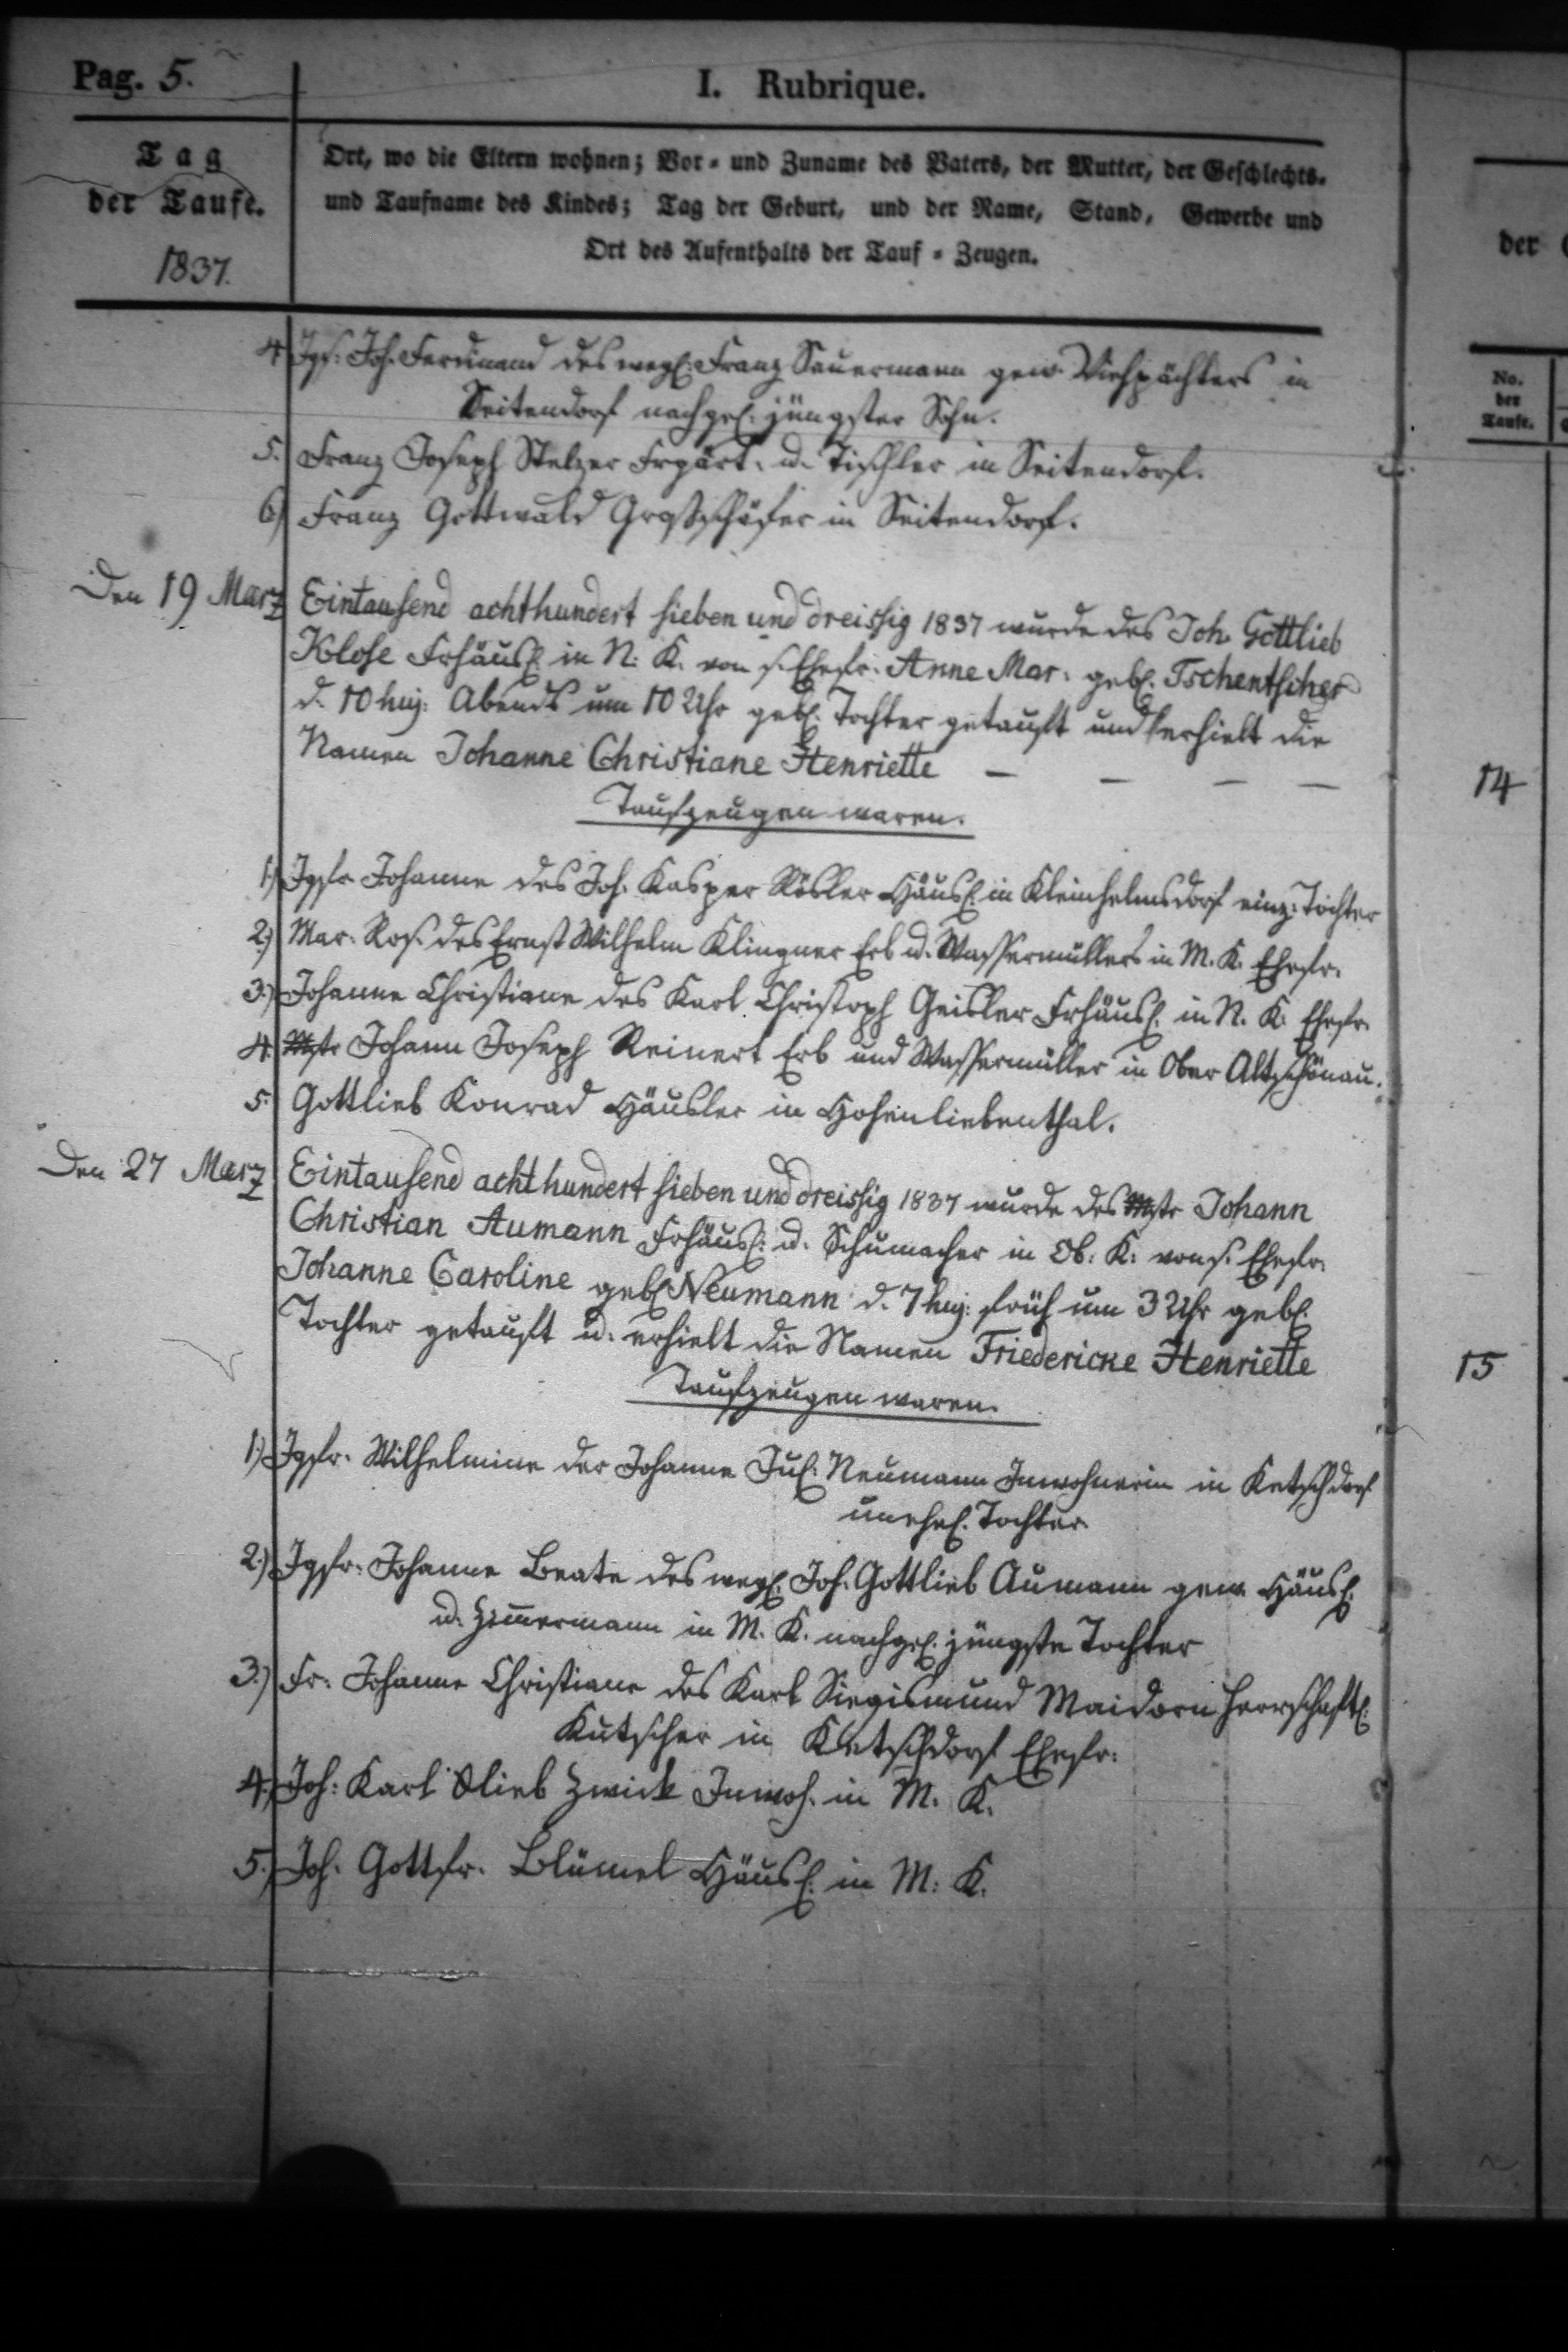 Pag. 5.
I. Rubrique.
Tag
der Taufe.
1837.
Ort, wo die Eltern wohnen; Vor- und Zuname des Vaters, der Mutter, der Geschlechts-
und Taufname des Kindes; Tag der Geburt, und der Name, Stand, Gewerbe und
Ort des Aufenthalts der Tauf-Zeugen.
4 Jgs. Joh. Ferdinand des wegl: Franz Sauermann gew. Viehpächters in
Seitendorf nachgel. jüngster Sohn.
5. Franz Joseph Stelzer Frgärt. u. Tischler in Seitendorf.
6) Franz Gottwald Großschäfer in Seitendorf.
Den 19 Marz Eintausend achthundert sieben und dreissig 1837 wurde des Joh. Gottlieb
Klose Frhäusl. in N. K. von s. Ehefr. Anne Mar. gebl. Tschentscher
d. 10 huj. Abends um 10 Uhr gebl. Tochter getauft und erhielt die
Namen Johanne Christiane Henriette — — — —
Taufzeugen waren.
1.) Jgfr Johanne des Joh. Kasper Rösler Häusl. in Kleinhelmsdorf einz. Tochter
2.) Mar. Ros. des Ernst Wilhelm Klingner Erb u. Wassermüllers in M. K. Ehefr.
3.) Johanne Christiane des Karl Christoph Geisler Frhäusl. in N. K. Ehefr.
4. Mstr Johann Joseph Reinert Erb und Wassermüller in Ober Altschönau.
5. Gottlieb Konrad Häusler in Hohenliebenthal.
Den 27 Marz Eintausend achthundert sieben und dreissig 1837 wurde des Mstr Johann
Christian Aumann Frhäusl. u. Schumacher in Ob. K. von s. Ehefr.
Johanne Caroline gebl. Neumann d. 7 huj. früh um 3 Uhr gebl.
Tochter getauft u. erhielt die Namen Friedericke Henriette
Taufzeugen waren.
1.) Jgfr. Wilhelmine der Johanne Jul. Neumann Inwohnerin in Ketschdorf
unehel. Tochter
2.) Jgfr. Johanne Beate des wegl. Joh. Gottlieb Aumann gew. Häusl.
u. Zimmermann in M. K. nachgel. jüngste Tochter
3.) Fr. Johanne Christiane des Karl Siegismund Maidorn herrschaftl.
Kutscher in Ketschdorf Ehefr.
4.) Joh. Karl Zwick Inwoh. in M. K.
5.) Joh. Gottfr. Blümel Häusl. in M. K.
der
No.
der
Taufe.
14
15